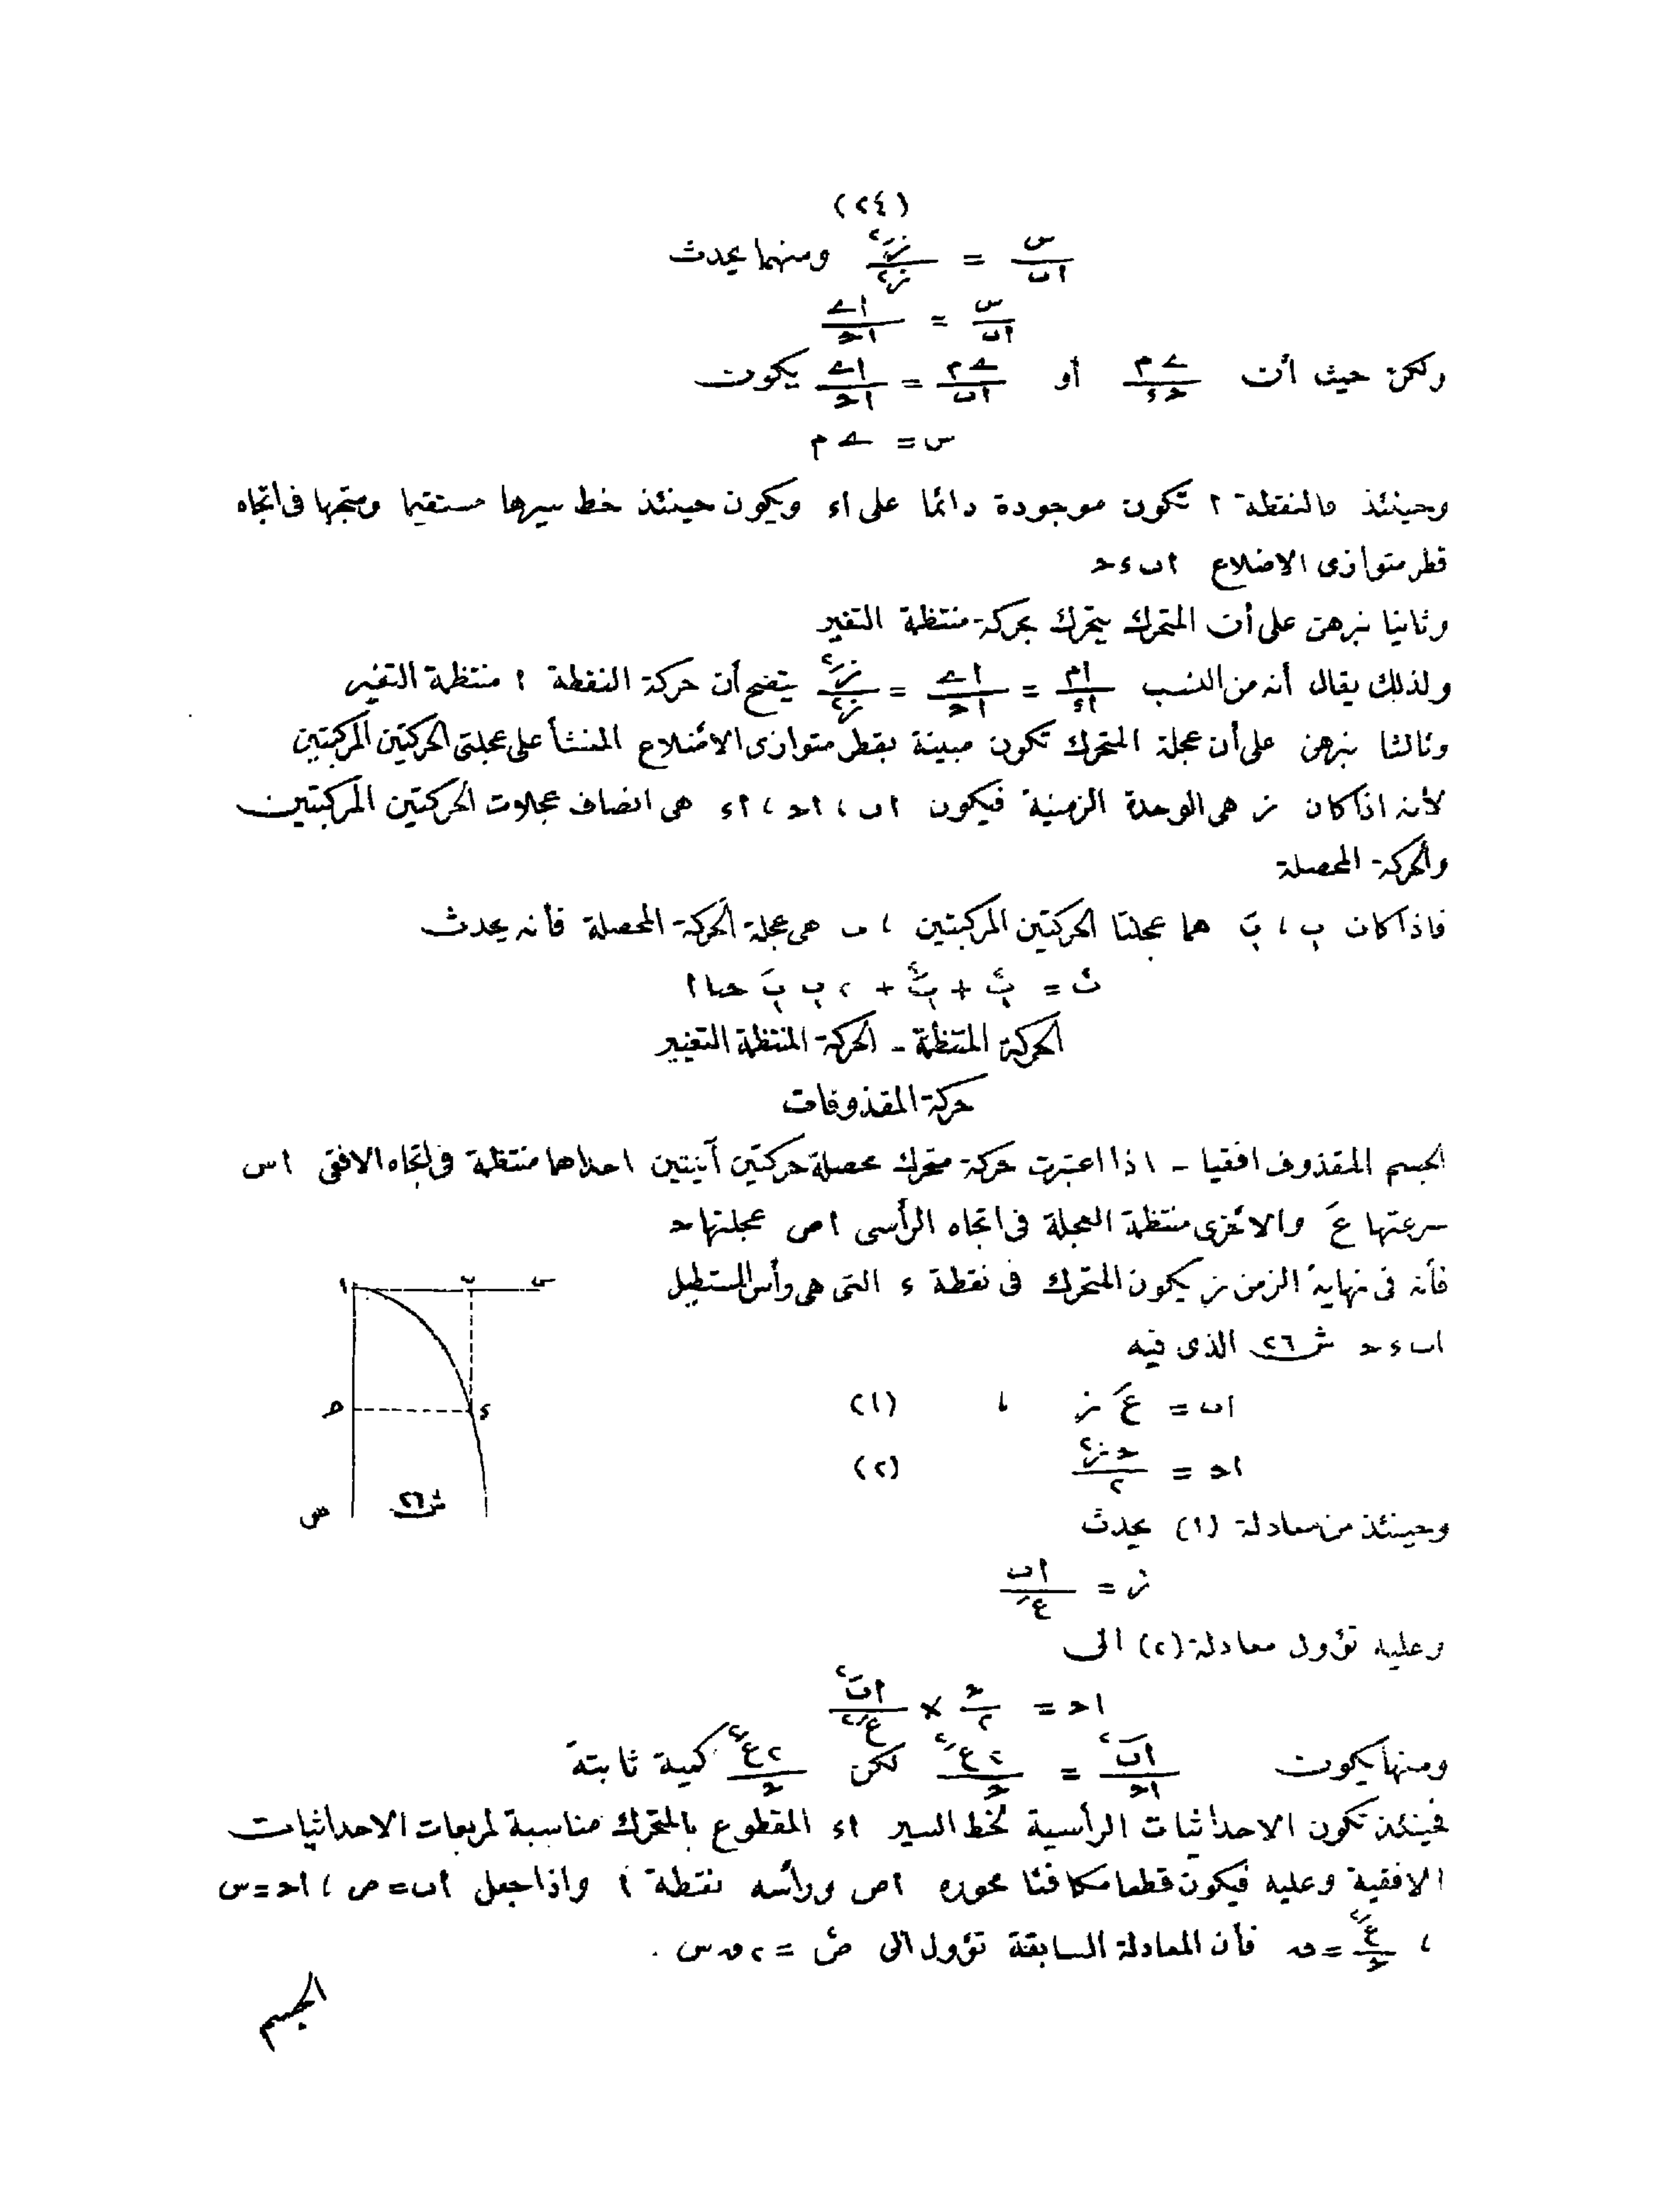 (٢٤)
س/اب = زَ٢/ز٢ ومنهما يحدث
س/اب = اے/احـ
ولكن حيث أن ےم/حـء أو ےم/اب = اے/احـ يكون
س = ےم
وحينئذ فالنقطة ا تكون موجودة دائما على اء ويكون حينئذ خط سيرها مستقيما ومتجها فى اتجاه
قطر متوازى الاضلاع ابءحـ
وثانيا نبرهن على أن المتحرك يتحرك بحركة منتظمة التغير
ولذلك يقال أنه من النسب ام/اء = اے/احـ = زَ٢/ز٢ يتضح أن حركة النقطة ا منتظمة التغير
وثالثا نبرهن على أن عجلة المتحرك تكون مبينة بقطر متوازى الاضلاع المنشأ على عجلتى الحركتين المركبتين
لأنه اذا كان ز هى الوحدة الزمنية فيكون اب ، احـ ، اء هى انصاف عجلات الحركتين المركبتين
والحركة المحصلة
فاذا كان ﭖ ، ﭖَ هما عجلتا الحركتين المركبتين ، ں هى عجلة الحركة المحصلة فأنه يحدث
ں٢ = ﭖ٢ + ﭖَ٢ + ٢ ﭖ ﭖَ حتا ا
الحركة المنتظمة ـ الحركة المنتظمة التغيير
حركة المقذوفات
الجسم المقذوف افقيا ـ اذا اعتبرت حركة متحرك محصلة حركتين آنيتين احداهما منتظمة فى اتجاه الافقى اس
سرعتها عَ والاخرى منتظمة العجلة فى اتجاه الرأسى اص عجلتها حـ
فأنه فى نهاية الزمن ز يكون المتحرك فى نقطة ء التى هى رأس المستطيل
ابءحـ ش٢٦ الذى فيه
اب = عَ ز ، (١)
احـ = حـ ز٢/٢ (٢)
ا ب س
حـ ء
ص ش٢٦
وحينئذ من معادلة (١) يحدث
ز = اب/عَ
وعليه تؤول معادلة (٢) الى
احـ = حـ/٢ × اب٢/عَ٢
ومنها يكون اب٢/احـ = ٢عَ٢/حـ لكن ٢عَ٢/حـ كمية ثابتة
فحينئذ تكون الاحداثيات الرأسية لخط السير اء المقطوع بالمتحرك مناسبة لمربعات الاحداثيات
الافقية وعليه فيكون قطعا مكافئا محوره اص ورأسه نقطة ا واذا جعل اب=ص ، احـ=س
، عَ٢/حـ = ں فأن المعادلة السابقة تؤول الى ص٢ = ٢ ں س .
الجسم